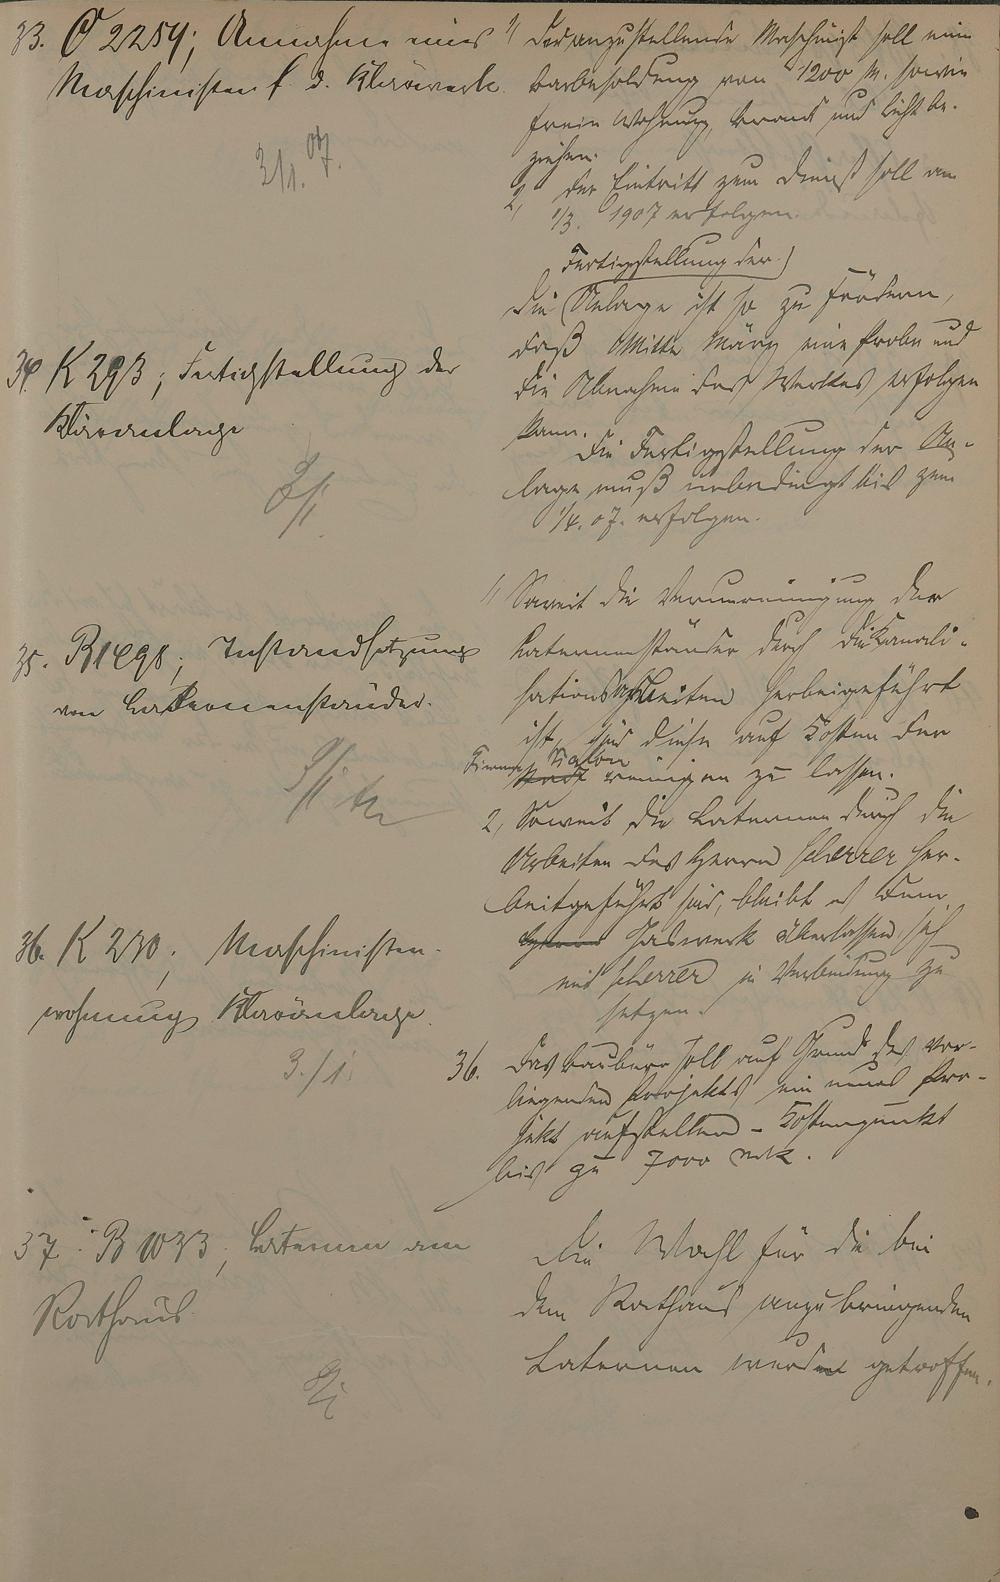 33. O 2254; Annahme eines
Maschinisten f. d. Klärwerk.
3/1. 07.
1/ Der anzustellende Maschinist soll eine
Barbesoldung von 1200 M. sowie
freie Wohnung, Brand und Licht be-
ziehen.
2, Der Eintritt zum Dienst soll am
1/3. 1907 erfolgen.
34. K 293; Fertigstellung der
Kläranlage
3/1.
Fertigstellung der
Die Anlage ist so zu fördern,
daß Mitte März eine Probe und
die Abnahme des Werkes erfolgen
kann.
Die Fertigstellung der An-
lage muß unbedingt bis zum
1/4. 07. erfolgen.
35. B 1498; Instandsetzung
von Laternenständer.
3/1
1/ Soweit die Verunreinigung der
Laternenständer durch die Kanali-
sationsarbeiten herbeigeführt
ist, sind diese auf Kosten der
Firma
Stadt reinigen zu lassen.
2, Soweit die Laternen durch die
Arbeiten des Herrn Scherrer her-
beigeführt sind, bleibt es dem
Herrn Gaswerk überlassen, sich
mit Scherrer in Verbindung zu
setzen.
36. K 230; Maschinisten-
wohnung Kläranlage.
3./1.
36. Das Baubüro soll auf Grund des vor-
liegenden Projekts ein neues Pro-
jekt aufstellen - Kostenpunkt
bis zu 7000 Mk.
37. B 1033; Laternen am
Rathaus.
3/1
Die Wahl für die bei
dem Rathaus anzubringenden
Laternen werden getroffen.